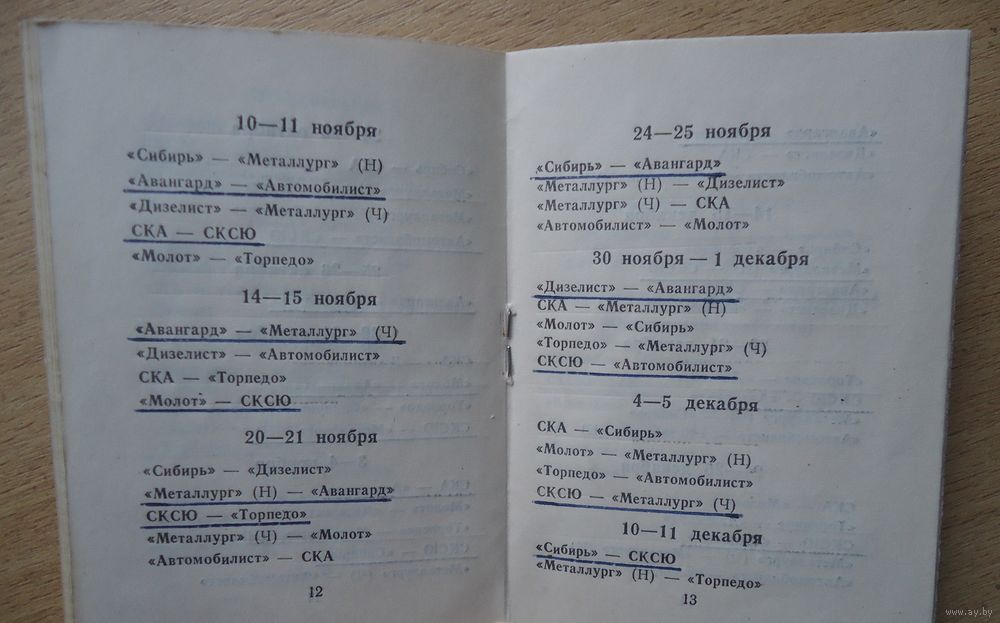 10—11 ноября
«Сибирь» — «Металлург» (Н)
«Авангард» — «Автомобилист»
«Дизелист» — «Металлург» (Ч)
СКА — СКСЮ
«Молот» — «Торпедо»
14—15 ноября
«Авангард» — «Металлург» (Ч)
«Дизелист» — «Автомобилист»
СКА — «Торпедо»
«Молот» — СКСЮ
20—21 ноября
«Сибирь» — «Дизелист»
«Металлург» (Н) — «Авангард»
СКСЮ — «Торпедо»
«Металлург» (Ч) — «Молот»
«Автомобилист» — СКА
12
24—25 ноября
«Сибирь» — «Авангард»
«Металлург» (Н) — «Дизелист»
«Металлург» (Ч) — СКА
«Автомобилист» — «Молот»
30 ноября — 1 декабря
«Дизелист» — «Авангард»
СКА — «Металлург» (Н)
«Молот» — «Сибирь»
«Торпедо» — «Металлург» (Ч)
СКСЮ — «Автомобилист»
4—5 декабря
СКА — «Сибирь»
«Молот» — «Металлург» (Н)
«Торпедо» — «Автомобилист»
СКСЮ — «Металлург» (Ч)
10—11 декабря
«Сибирь» — СКСЮ
«Металлург» (Н) — «Торпедо»
13
www.ay.by